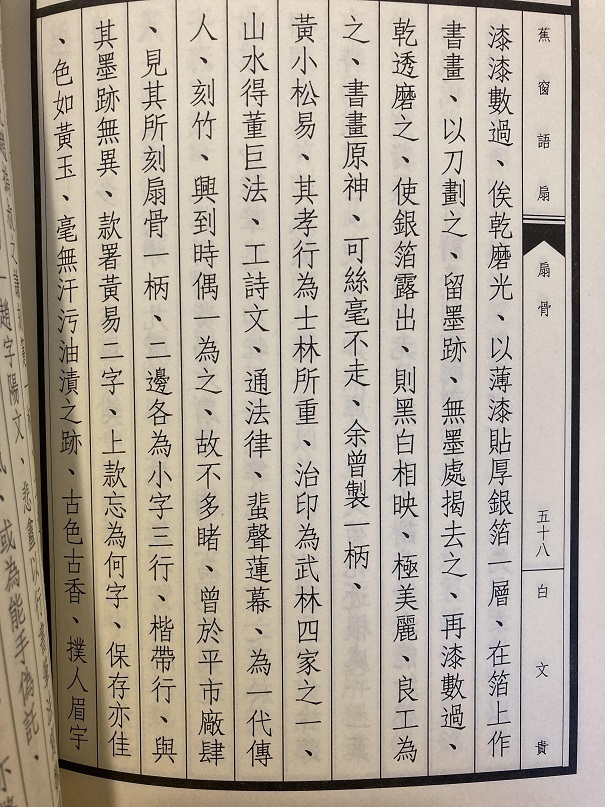 蕉窗語扇
扇骨
五十八
白文貴
漆漆數過、俟乾磨光、以薄漆貼厚銀箔一層、在箔上作
書畫、以刀劃之、留墨跡、無墨處揭去之、再漆數過、
乾透磨之、使銀箔露出、則黑白相映、極美麗、良工為
之、書畫原神、可絲毫不走、余曾製一柄、
黃小松易、其孝行為士林所重、治印為武林四家之一、
山水得董巨法、工詩文、通法律、蜚聲蓮幕、為一代傳
人、刻竹、興到時偶一為之、故不多睹、曾於平市廠肆
、見其所刻扇骨一柄、二邊各為小字三行、楷帶行、與
其墨跡無異、款署黃易二字、上款忘為何字、保存亦佳
、色如黃玉、毫無汗污油漬之跡、古色古香、撲人眉宇
趙字陽文、
或為能手偽託、